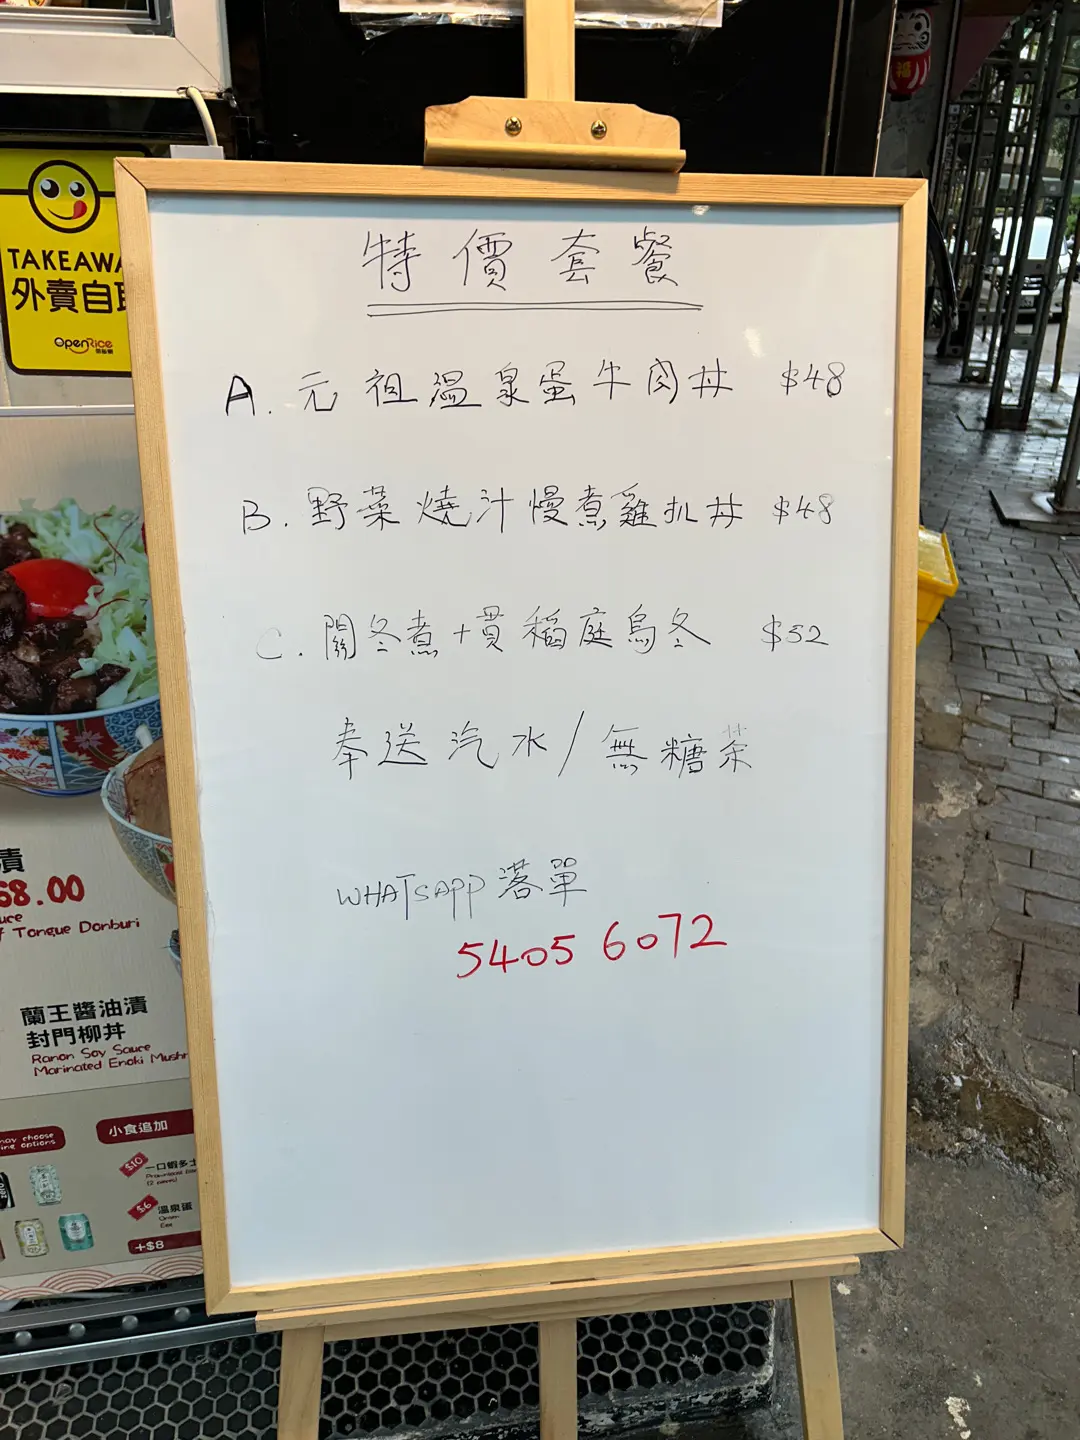 特價套餐
A. 元祖溫泉蛋牛肉丼 $48
B. 野菜燒汁慢煮雞扒丼 $48
C. 關冬煮+貫稻庭烏冬 $52
奉送汽水/無糖茶
WHATSAPP 落單
5405 6072
TAKEAWA
外賣自取
OpenRice
漬
68.00
uce
f Tongue Donburi
蘭王醬油漬
封門柳丼
Ranon Soy Sauce
Marinated Enoki Mushr
may choose
ine options
小食追加
$10
一口蝦多士
(2 pieces)
$6
溫泉蛋
Onsen
+$8
福